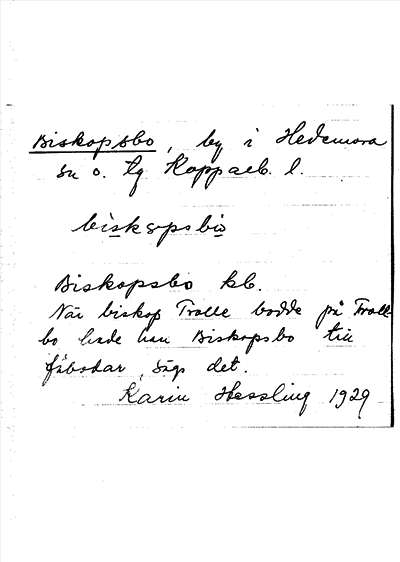 Biskopsbo, by i Hedemora
sn o. tg Kopparb. l.
biskopsbo
Biskopsbo kb.
När biskop Trolle bodde på Trolle
bo hade han Biskopsbo till
fäbodar, sägs det.
Karin Hessling 1929